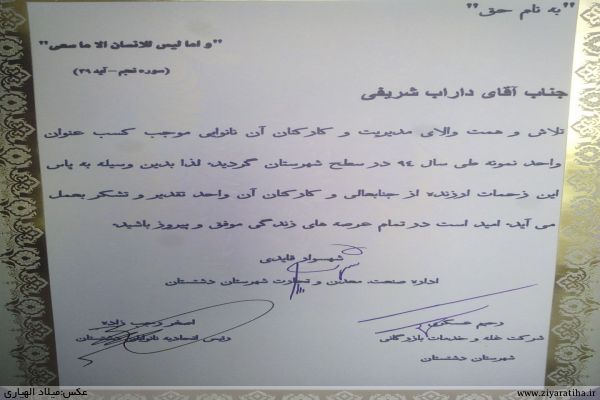 "به نام حق"
"و اما لیس للانسان الا ما سعی"
(سوره نجم-آیه ۳۹)
جناب آقای داراب شریفی
تلاش و همت والای مدیریت و کارکنان آن نانوایی موجب کسب عنوان
واحد نمونه طی سال ۹۴ در سطح شهرستان گردید، لذا بدین وسیله به پاس
این زحمات ارزنده از جنابعالی و کارکنان آن واحد تقدیر و تشکر بعمل
می آید. امید است در تمام عرصه های زندگی موفق و پیروز باشید.
شهسوار قایدی
اداره صنعت، معدن و تجارت شهرستان دشتستان
رحیم عسکری
شرکت غله و خدمات بازرگانی
شهرستان دشتستان
اصغر رجب زاده
رئیس اتحادیه نانوایان دشتستان
عکس:میلاد الهیاری
www.ziyaratiha.ir